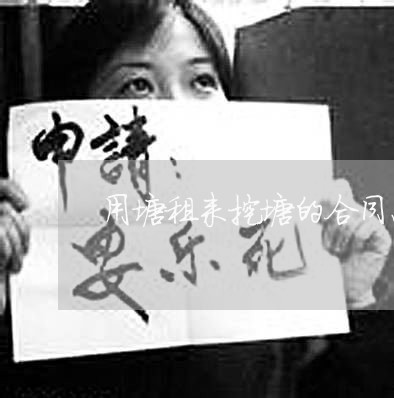 申請：
用塘租来挖塘的合同、
安乐死